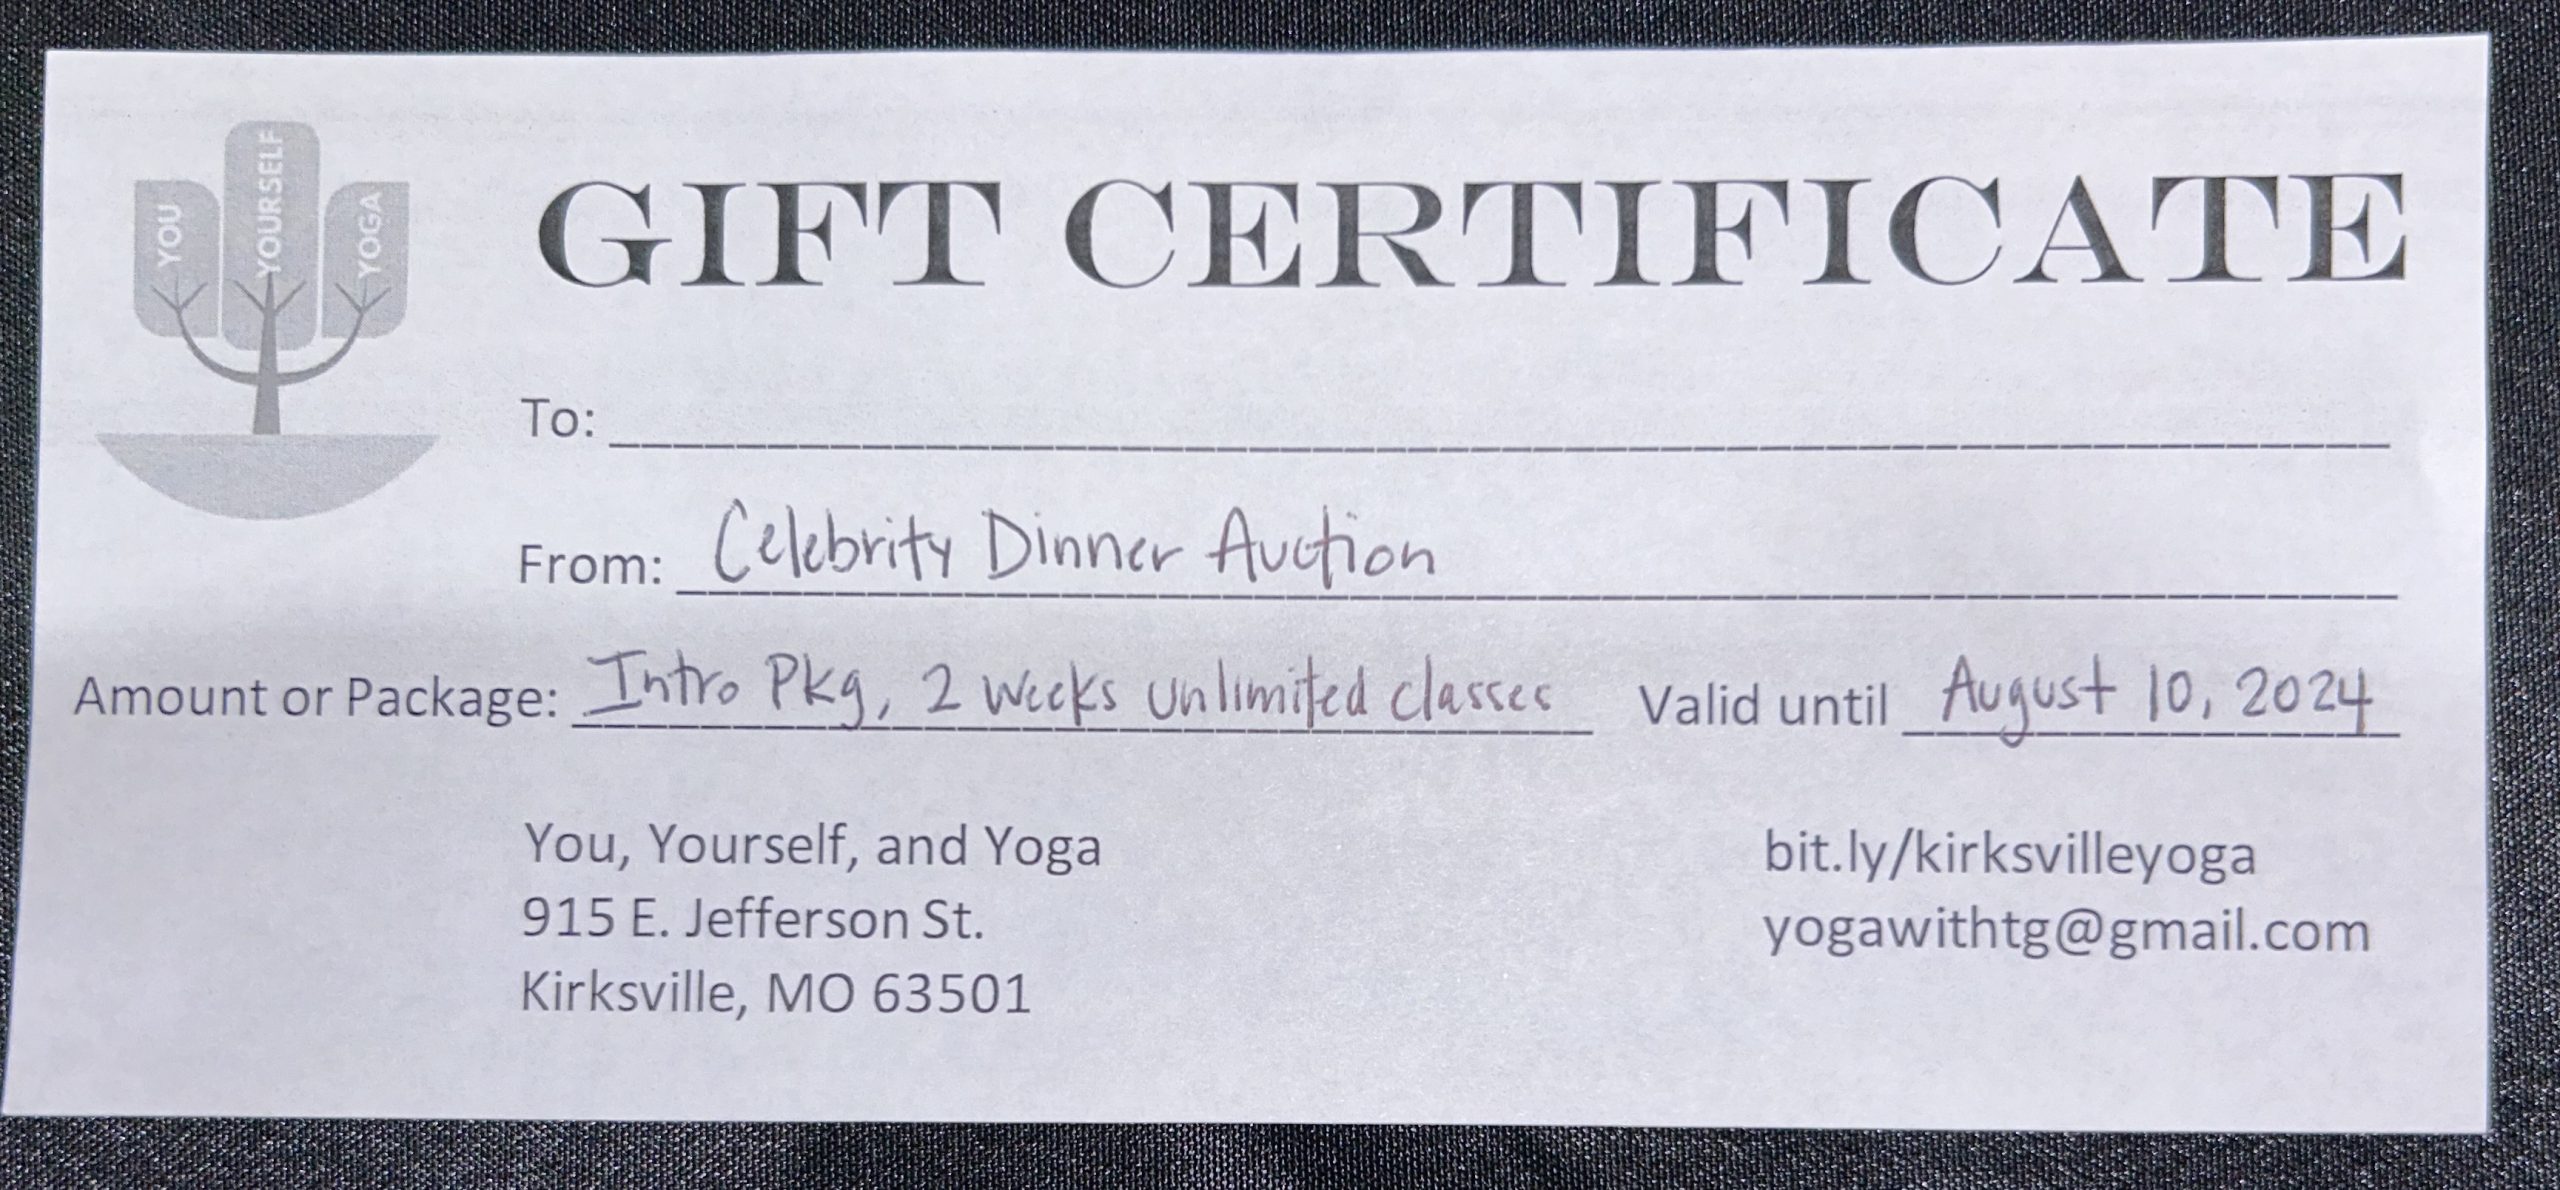 YOU
YOURSELF
YOGA
GIFT CERTIFICATE
To:
From: Celebrity Dinner Auction
Amount or Package: Intro Pkg, 2 weeks unlimited classes Valid until August 10, 2024
You, Yourself, and Yoga
915 E. Jefferson St.
Kirksville, MO 63501
bit.ly/kirksvilleyoga
yogawithtg@gmail.com